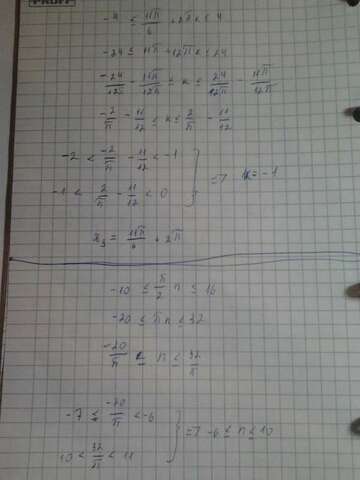 PROFF
-4 ≤ 11π/6 + 2πk ≤ 4
-24 ≤ 11π + 12πk ≤ 24
-24/12π - 11π/12π ≤ k ≤ 24/12π - 11π/12π
-2/π - 11/12 ≤ k ≤ 2/π - 11/12
-2 < -2/π - 11/12 < -1
-1 < 2/π - 11/12 < 0 } => k = -1
x₃ = 11π/6 + 2π
-10 ≤ π/2 n ≤ 16
-20 ≤ πn ≤ 32
-20/π ≤ n ≤ 32/π
-7 ≤ -20/π < -6
10 < 32/π < 11 } => -6 ≤ n ≤ 10